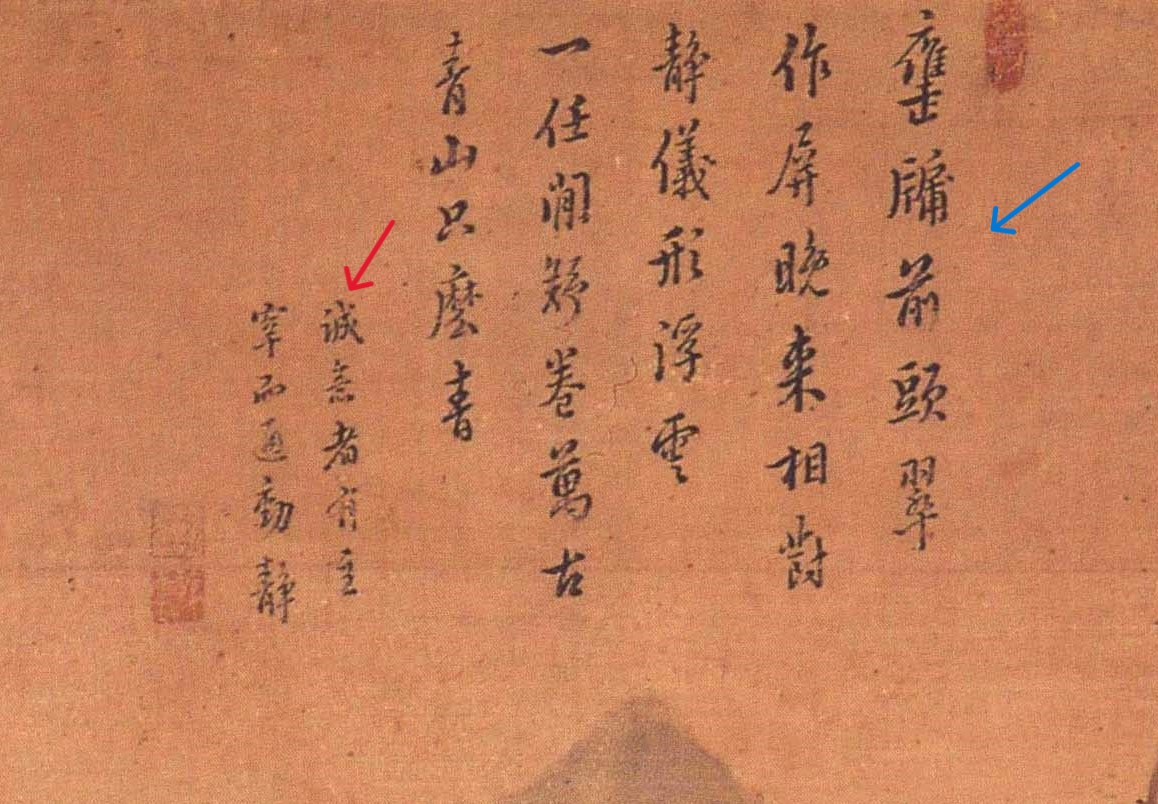 甕牖前頭翠
作屏晚來相對
靜儀形浮雲
一任閒舒卷萬古
青山只麼青
誠意者有主
宰而通動靜